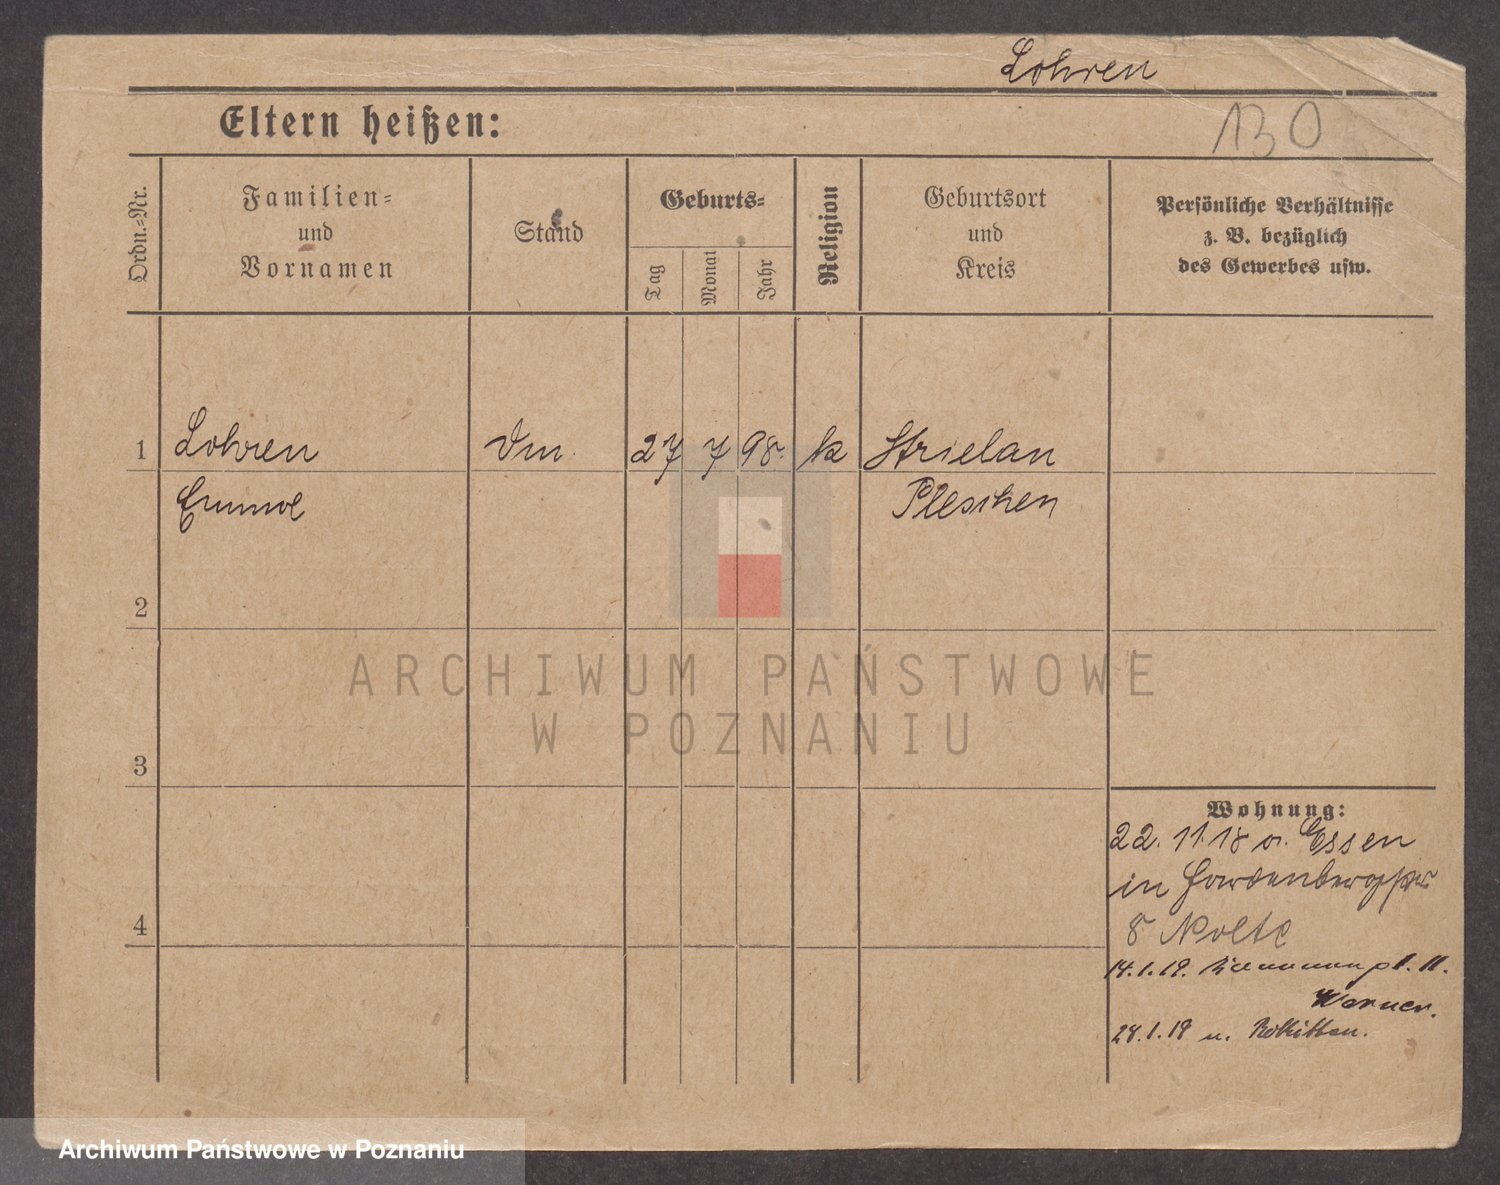 Lohren
Eltern heißen:
130
Ordn.-Nr.
Familien-
und
Vornamen
Stand
Geburts-
Tag
Monat
Jahr
Religion
Geburtsort
und
Kreis
Persönliche Verhältnisse
z. B. bezüglich
des Gewerbes usw.
1 Lohren 27 7 98. k Strielau
Pleschen
2
3
Wohnung:
22. 11. 18 v. Essen
in
8 Nolte
4
14. 1. 19. 11.
Werner.
28. 1. 19 n.
ARCHIWUM PAŃSTWOWE
W POZNANIU
Archiwum Państwowe w Poznaniu